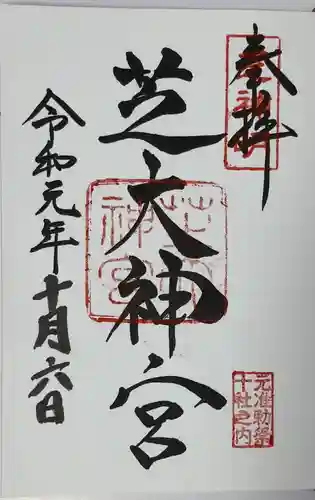 奉拝
芝大神宮
令和元年十月六日
元准勅祭
十社之内